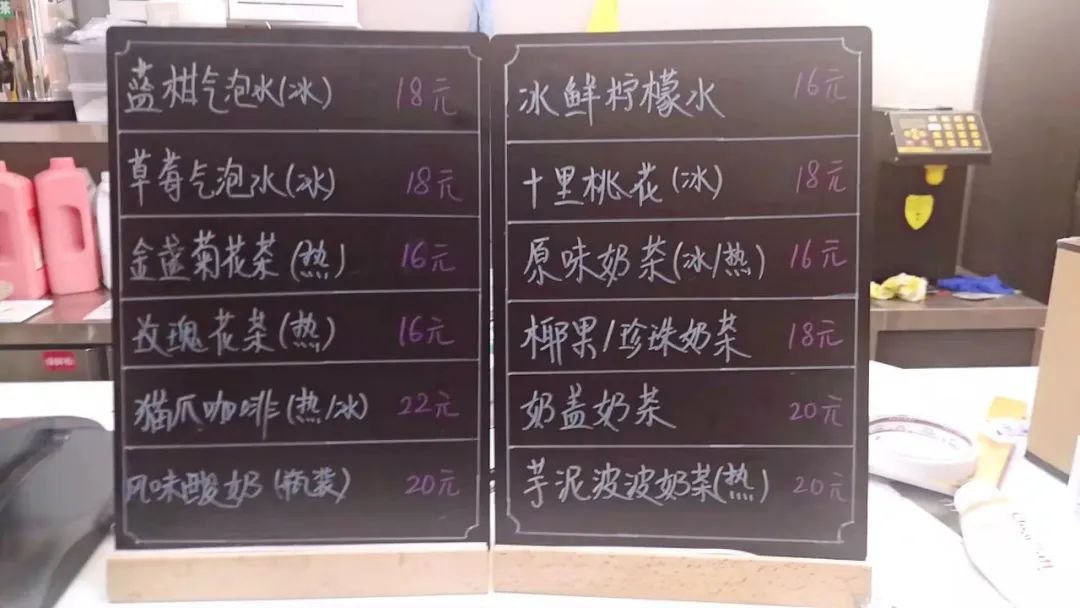 茶
蓝柑气泡水(冰) 18元
草莓气泡水(冰) 18元
金盏菊花茶(热) 16元
玫瑰花茶(热) 16元
猫爪咖啡(热/冰) 22元
风味酸奶(瓶装) 20元
冰鲜柠檬水 16元
十里桃花(冰) 18元
原味奶茶(冰/热) 16元
椰果/珍珠奶茶 18元
奶盖奶茶 20元
芋泥波波奶茶(热) 20元